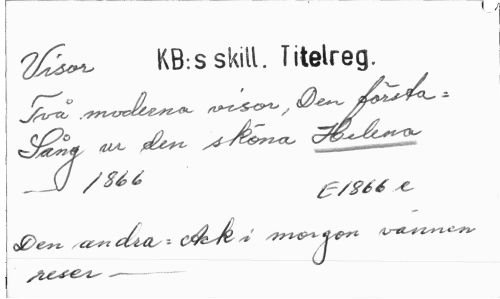 Visor KB:s skill. Titelreg.
Två moderna visor, Den första =
Sång ur den sköna Helena
— 1866 E1866 c
Den andra = Ack i morgon vännen
reser —